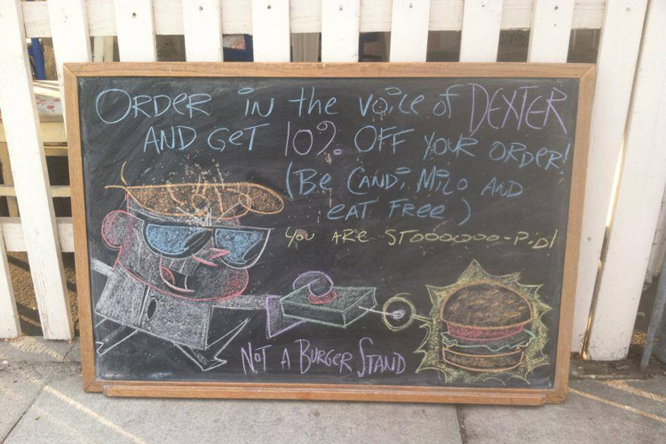 ORDER iN the voice of DEXTER
AND GET 10% OFF YOUR ORDER!
(BE CANDi MiLO AND
EAT FREE)
YOU ARE STOOOOOO-PiD!
NOT A BURGER STAND